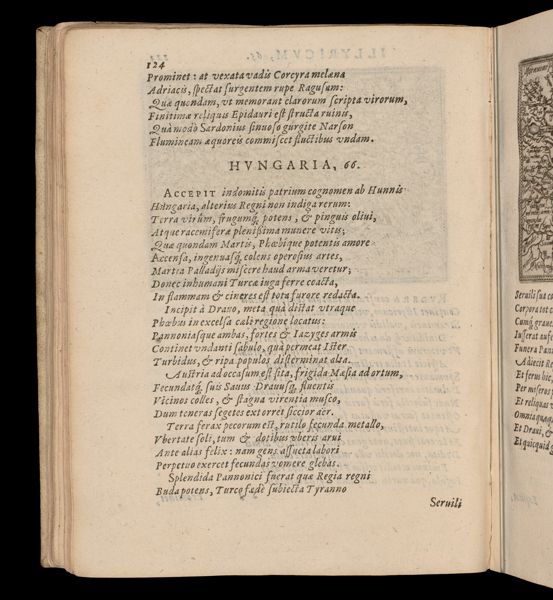 124
Prominet: at vexata vadis Corcyra melæna
Adriacis, spectat surgentem rupe Ragusum:
Quæ quondam, vt memorant clarorum scripta virorum,
Finitimæ reliquis Epidauri est structa ruinis,
Quà modò Sardonius sinuoso gurgite Narson
Flumineam æquoreis commiscet fluctibus vndam.
HVNGARIA, 66.
ACCEPIT indomitis patrium cognomen ab Hunnis
Hungaria, alterius Regni non indiga rerum:
Terra virûm, frugumq́; potens, & pinguis oliui,
Atque racemiferæ plenissima munere vitis;
Quæ quondam Martis, Phœbique potentis amore
Accensa, ingenuasq́; colens operosius artes,
Martia Palladijs miscere haud arma veretur;
Donec inhumani Turcæ iuga ferre coacta,
In flammam & cineres est tota furore redacta.
Incipit à Drauo, meta quà distat vtraque
Phœbus in excelsa cæli regione locatus:
Pannoniasque ambas, fortes & Iazyges armis
Continet vndanti sabulo, quà permeat Ister
Turbidus, & ripa populos disterminat alta.
Austria ad occasum est sita, frigida Mæsia ad ortum,
Fecundatq́; suis Sauus Drauusq́; fluentis
Vicinos colles, & stagna virentia musco,
Dum teneras segetes extorret siccior aër.
Terra ferax pecorum est, rutilo fecunda metallo,
Vbertate soli, tum & dotibus vberis arui
Ante alias felix: nam gens assueta labori
Perpetuo exercet fecundas vomere glebas.
Splendida Pannonici fuerat quæ Regia regni
Buda potens, Turco fœdè subiecta Tyranno
Seruili
Seruili sua co
Corpora tot c
Funera Pann
Et ferus hic,
Per miseros
Et reliquas v
Omnia quæq́
Et Draui, &
Et quicquid g